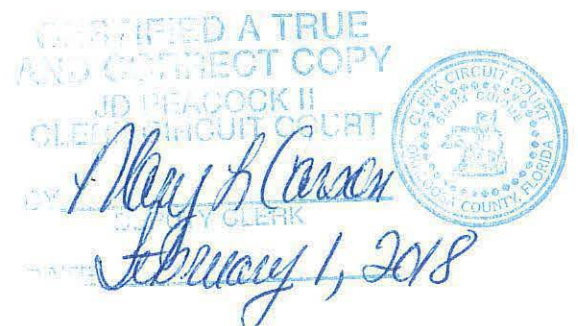 CERTIFIED A TRUE
AND CORRECT COPY
JD PEACOCK II
CLERK CIRCUIT COURT
BY Mary L Carson
DEPUTY CLERK
DATE February 1, 2018
CLERK CIRCUIT COURT
OKALOOSA COUNTY, FLORIDA